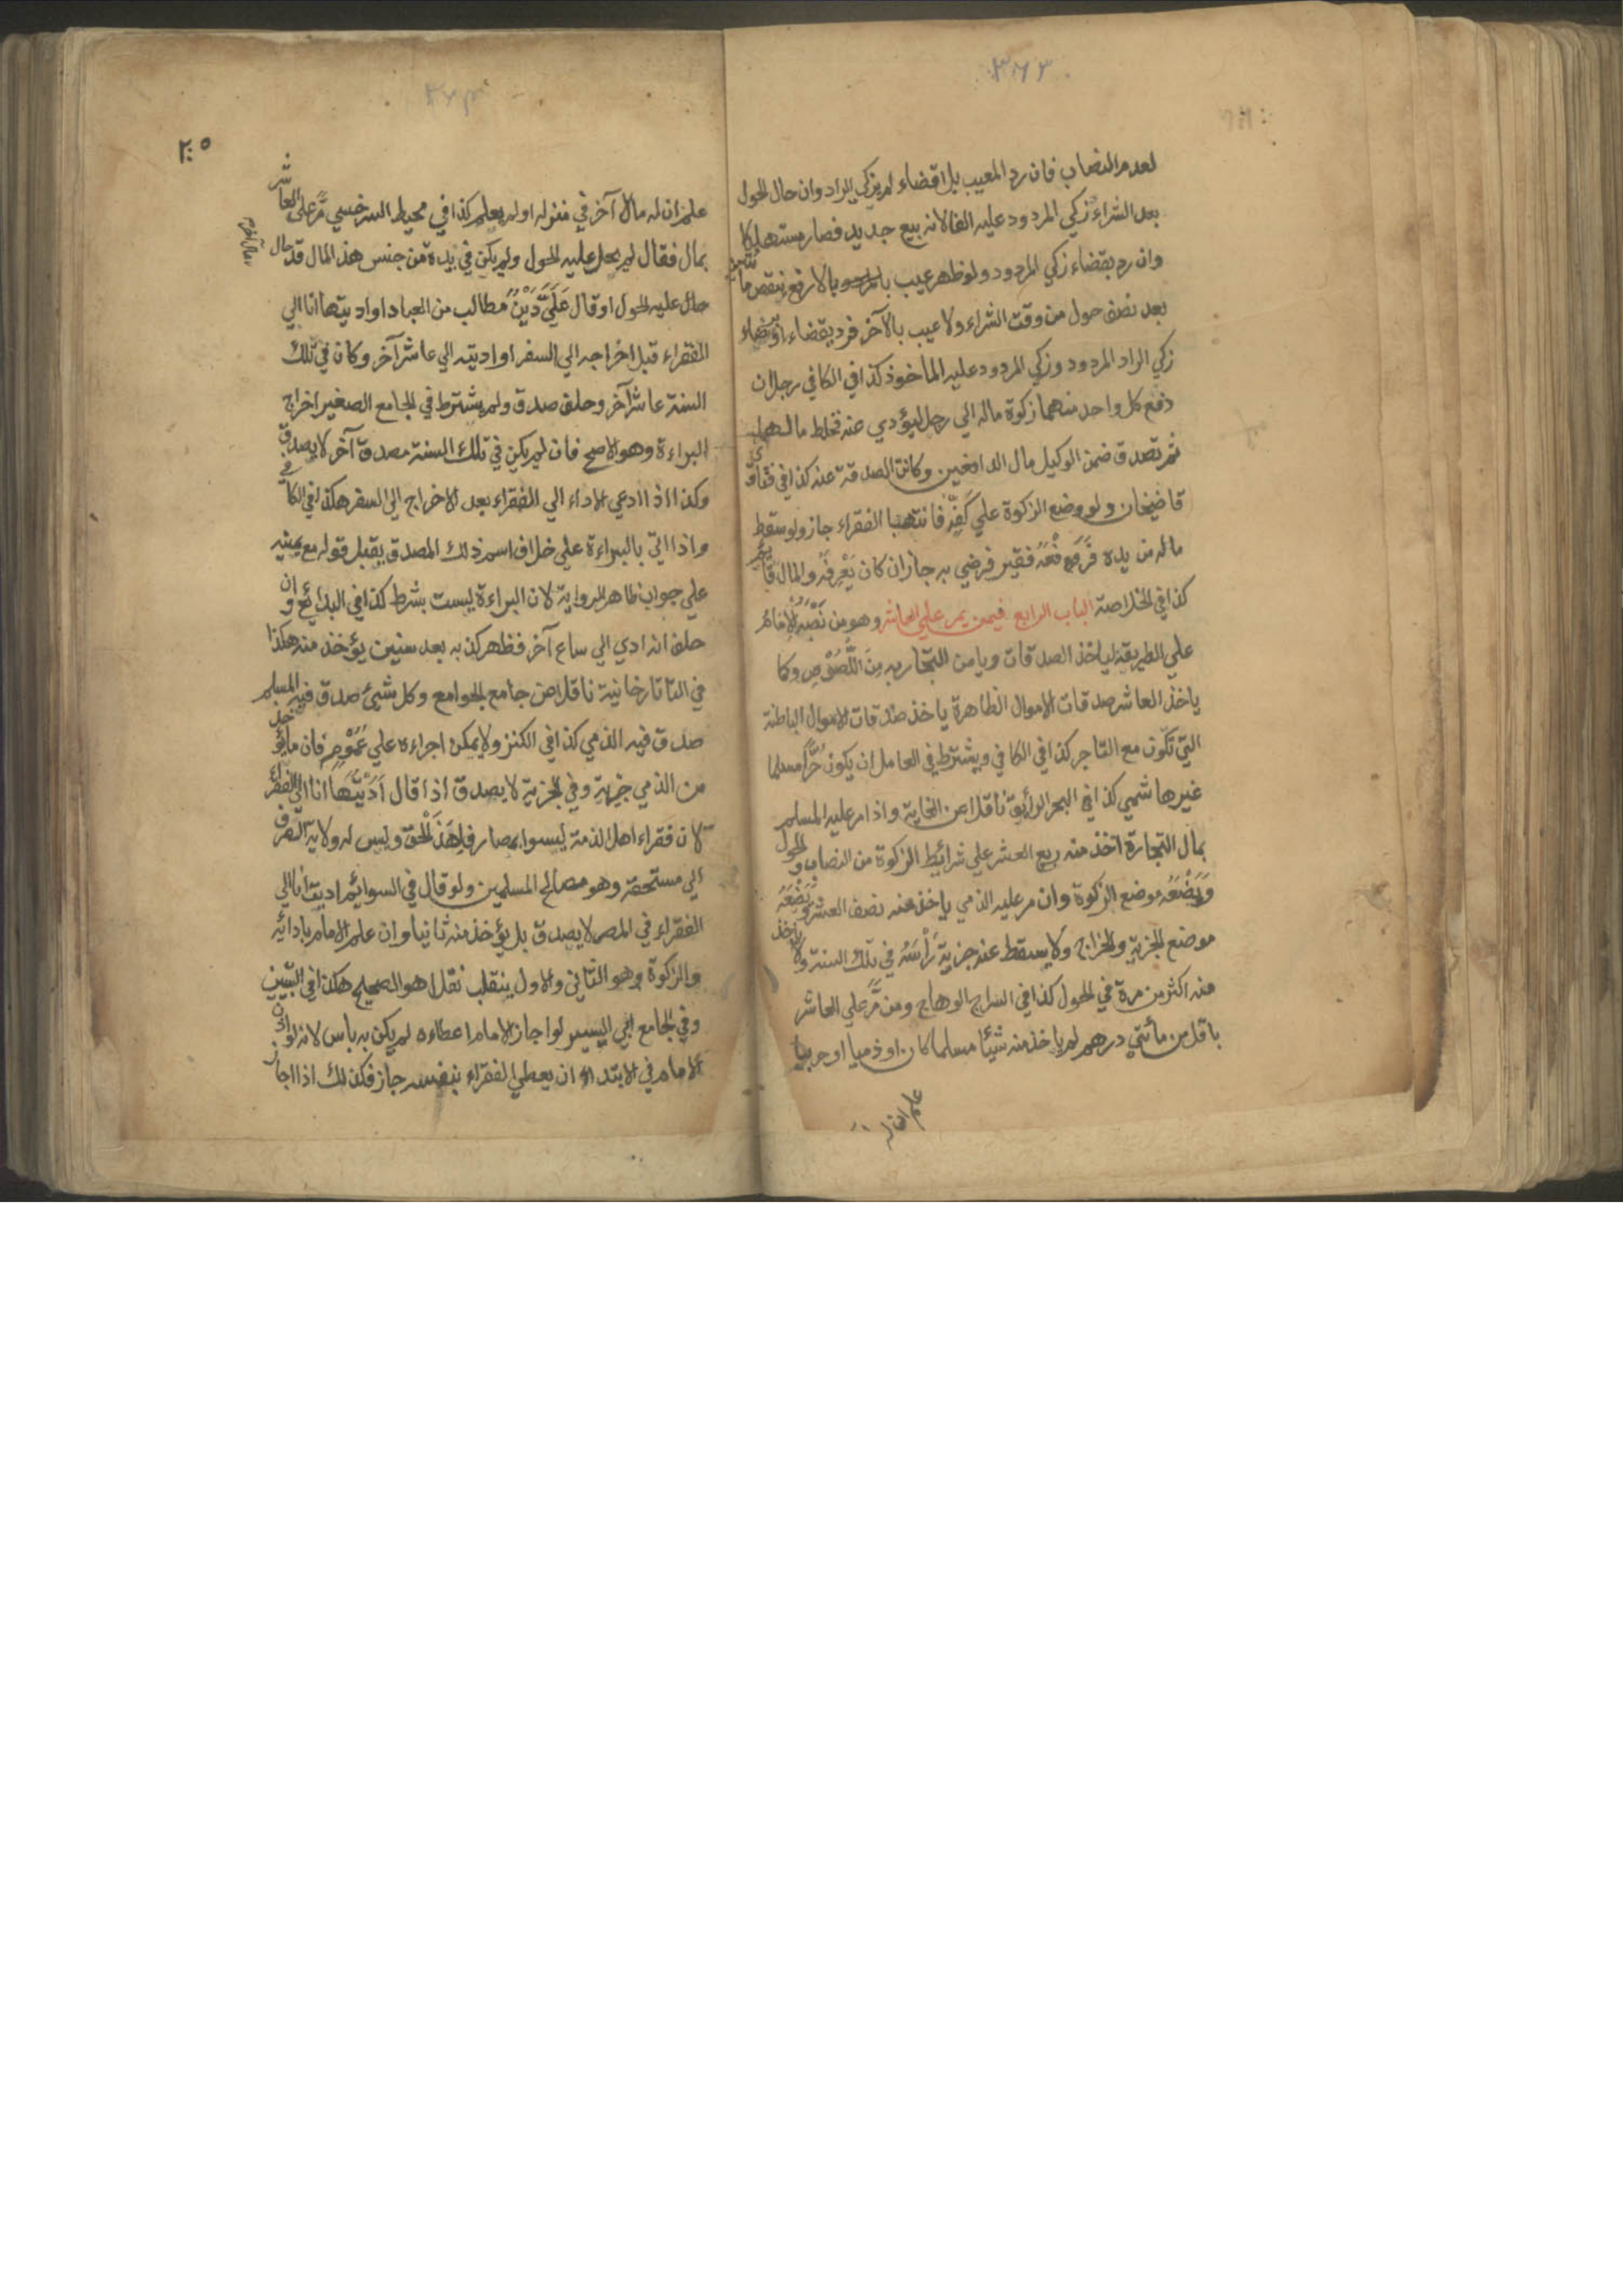 ٣٦٣
لعدم النصاب فان رد المعيب بلا قضاء لم يزكي الراد وان حال الحول
بعد الشراء زكي المردود عليه الفا لانه بيع جديد فصار مستهلكا
وان رد بقضاء زكي المردود ولو ظهر عيب بالمردود بالارفع ينقص مائتين
بعد نصف حول من وقت الشراء ولا عيب بالآخر فرد بقضاء او رضاء
زكي الراد المردود وزكي المردود عليه الماخوذ كذا في الكافي رجلان
دفع كل واحد منهما زكوة ماله الي رجل ليؤدي عنه فخلط مالهما
ثم تصدق ضمن الوكيل مال الدافعين وكانت الصدقة عنه كذا في فتاوى
قاضيخان ولو وضع الزكوة علي كفه فانتهبها الفقراء جاز ولو سقط
ماله من يده فرفعه فقير فرضي به جاز ان كان يعرفه والمال قائم
كذا في الخلاصة الباب الرابع فيمن يمر علي العاشر وهو من نصبه الامام
علي الطريقة لياخذ الصدقات ويامن التجار به من اللصوص وكما
ياخذ العاشر صدقات الاموال الظاهرة ياخذ صدقات الاموال الباطنة
التي تكون مع التاجر كذا في الكافي ويشترط في العامل ان يكون حرا مسلما
غير هاشمي كذا في البحر الرائق ناقلا عن الغاية واذا مر عليه المسلم
بمال التجارة اخذ منه ربع العشر علي شرائط الزكوة من النصاب والحول
ويضعه موضع الزكوة وان مر عليه الذمي ياخذ منه نصف العشر ويضعه
موضع الجزية والخراج ولا يسقط عنه جزية رأسه في تلك السنة ولا ياخذ
منه اكثر من مرة في الحول كذا في السراج الوهاج ومن مر علي العاشر
باقل من مأتي درهم لم ياخذ منه شيئا مسلما كان او ذميا او حربيا
علم ان له
٢٠٥
علم ان له مالا آخر في منزله او لم يعلم كذا في محيط السرخسي مر علي العاشر
بمال فقال لم يحل عليه الحول ولم يكن في يده من جنس هذا المال قد حال
حال عليه الحول او قال علي دين مطالب من العباد او اديتها انا الي
الفقراء قبل اخراجه الي السفر او اديته الي عاشر آخر وكان في تلك
السنة عاشر آخر وحلف صدق ولم يشترط في الجامع الصغير اخراج
البراءة وهو الاصح فان لم يكن في تلك السنة مصدق آخر لا يصدق
وكذا اذا ادعي الاداء الي الفقراء بعد الاخراج الي السفر هكذا في الكافي
واذا اتي بالبراءة علي خلاف اسم ذلك المصدق يقبل قوله مع يمينه
علي جواب ظاهر الرواية لان البراءة ليست بشرط كذا في البدائع وان
حلف انه ادي الي ساع آخر فظهر كذبه بعد سنين يؤخذ منه هكذا
في التاتارخانية ناقلا عن جامع الجوامع وكل شيئ صدق فيه المسلم
صدق فيه الذمي كذا في الكنز ولا يمكن اجراءه علي عمومه فان ما يؤخذ
من الذمي جزية وفي الجزية لا يصدق اذا قال اديتها انا الي الفقراء
لان فقراء اهل الذمة ليسوا بمصارف لهذا الحق وليس له ولاية الصرف
الي مستحقه وهو مصالح المسلمين ولو قال في السوائم اديت انا الي
الفقراء في المصر لا يصدق بل يؤخذ منه ثانيا وان علم الامام بادائه
والزكوة هو الثاني والاول ينقلب نفلا هو الصحيح هكذا في التبيين
وفي الجامع ابي اليسير لو اجاز الامام اعطاءه لم يكن به باس لانه لو اذن
الامام في الابتداء ان يعطي الفقراء بنفسه جاز فكذلك اذا اجاز